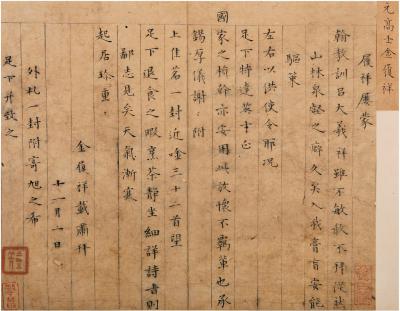 元高士金復祥
履祥屢蒙
翰教訓以大義祥雖不敏敢不拜從然
山林泉壑之癖久矣入我膏肓安能
驅策
左右以供使令耶况
足下特達英才正
國家之楨幹亦安用此放懷不羈輩也承
錫厚儀謝謝附
上佳茗一封近唫三十二首望
足下退食之暇烹茶靜坐細詳詩書則
鄙志見矣天氣漸寒
起居珍重
金復祥載肅拜
十一月六日
外札一封附寄旭之希
足下升致之